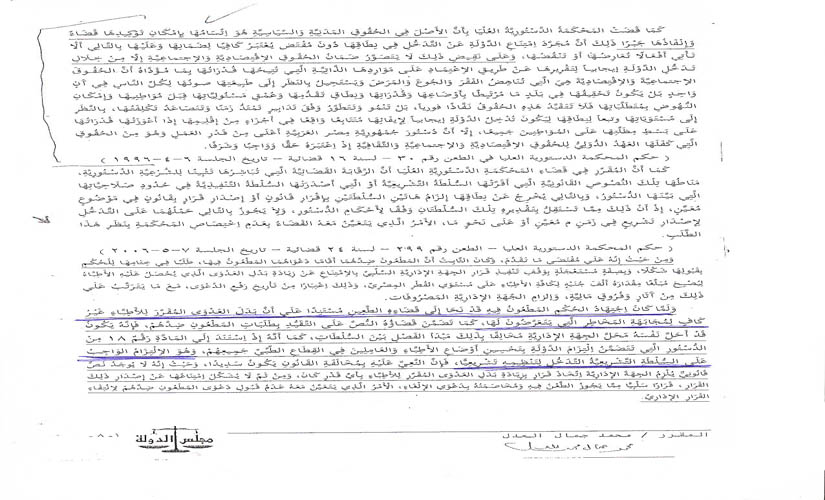 كما قضت المحكمة الدستورية العليا بأن الأصل في الحقوق المدنية والسياسية هو إلتسامها بإمكان توكيدها قضاءً
وإنفاذها جبرًا ذلك أن مجرد امتناع الدولة عن التدخل في نطاقها دون مقتض يعتبر كافيًا لضمانها وعليها بالتالي ألا
تأتي أفعالاً تعارضها أو تنقضها، وعلى نقيض ذلك لا يتصور ضمان الحقوق الاقتصادية والاجتماعية إلا من خلال
تدخل الدولة إيجابيًا لتقريرها عن طريق الاعتماد على مواردها الذاتية التي تتيحها قدراتها بما مؤداه أن الحقوق
الاجتماعية والاقتصادية هي التي تناهض الفقر والجوع والمرض ويستحيل بالنظر إلى طبيعتها صونها لكل الناس في آن
واحد بل يكون تحقيقها في بلد ما مرتبطًا بأوضاعها وقدراتها ونطاق تقدمها وعمق مسئولياتها قبل مواطنيها وإمكان
النهوض بمتطلباتها فلا تتقيد هذه الحقوق نفاذًا فوريًا، بل تنمو وتتطور وفق تدابير تمتد زمنًا وتتصاعد تكلفتها، بالنظر
إلى مستوياتها وتبعًا لنطاقها ليكون تدخل الدولة إيجابيًا لإيفائها متتابعًا واقعًا في أجزاء من إقليمها إذا أعوزتها قدراتها
على بسط مظلتها على المواطنين جميعًا، إلا أن دستور جمهورية مصر العربية أعلى من قدر العمل وهو من الحقوق
التي كفلها العهد الدولي للحقوق الاقتصادية والاجتماعية والثقافية إذ اعتبره حقًا وواجبًا وشرفًا.
( حكم المحكمة الدستورية العليا في الطعن رقم ٣٠ - لسنة ١٦ قضائية - تاريخ الجلسة ٦-٤-١٩٩٦ )
كما أن المقرر في قضاء المحكمة الدستورية العليا أن الرقابة القضائية التي تباشرها تثبيتًا للشرعية الدستورية،
مناطها تلك النصوص القانونية التي أقرتها السلطة التشريعية أو التي أصدرتها السلطة التنفيذية في حدود صلاحياتها
التي بينها الدستور، وبالتالي يخرج عن نطاقها إلزام هاتين السلطتين بإقرار قانون أو إصدار قرار بقانون في موضوع
معين، إذ أن ذلك مما تستقل بتقديره تلك السلطتان وفقًا لأحكام الدستور، ولا يجوز بالتالي حملهما على التدخل
لإصدار تشريع في زمن م معين أو على نحو ما، الأمر الذي يتعين معه القضاء بعدم اختصاص المحكمة بنظر هذا
الطلب.
( حكم المحكمة الدستورية العليا - الطعن رقم ٢٩٩ - لسنة ٢٤ قضائية - تاريخ الجلسة ٧-٥-٢٠٠٦ )
ومن حيث إنه على مقتضى ما تقدم، وكان الثابت أن المطعون ضدهما أقاما دعواهما المطعون فيها، طلبًا في ختامها للحكم
بقبولها شكلاً، وبصفة مستعجلة بوقف تنفيذ قرار الجهة الإدارية السلبي بالامتناع عن زيادة بدل العدوى الذي يحصل عليه الأطباء
ليصبح مبلغًا مقداره ألف جنيه لكافة الأطباء على مستوى القطر المصري، وذلك اعتبارًا من تاريخ رفع الدعوى، مع ما يترتب على
ذلك من آثار وفروق مالية، وإلزام الجهة الإدارية المصروفات.
ولما كان اجتهاد الحكم المطعون فيه قد نحا إلى قضاءه الطعين مستندًا على أن بدل العدوى المقرر للأطباء غير
كاف لمجابهة المخاطر التي يتعرضون لها، كما تضمن قضاؤه النص على التقيد بطلبات المطعون ضدهم، فإنه يكون
قد أحل نفسه محل الجهة الإدارية مخالفًا بذلك مبدأ الفصل بين السلطات، كما أنه إذ استند إلى المادة رقم ١٨ من
الدستور التي تتضمن التزام الدولة بتحسين أوضاع الأطباء والعاملين في القطاع الطبي جميعهم، وهو الالتزام الواجب
على السلطة التشريعية التدخل لتنظيمه تشريعيًا، فإن النعي عليه بمخالفة القانون يكون سديدًا، وحيث إنه لا يوجد نص
قانوني يلزم الجهة الإدارية اتخاذ قرار بزيادة بدل العدوى المقرر للأطباء بأي قدر كان، ومن ثم لا يشكل امتناعها عن إصدار ذلك
القرار، قرارًا سلبيًا مما يجوز الطعن فيه ومخاصمته بدعوى الإلغاء، الأمر الذي يتعين معه عدم قبول دعوى المطعون ضدهم لانتفاء
القرار الإداري.
المقرر / محمد جمال العدل
مجلس الدولة
-٨-